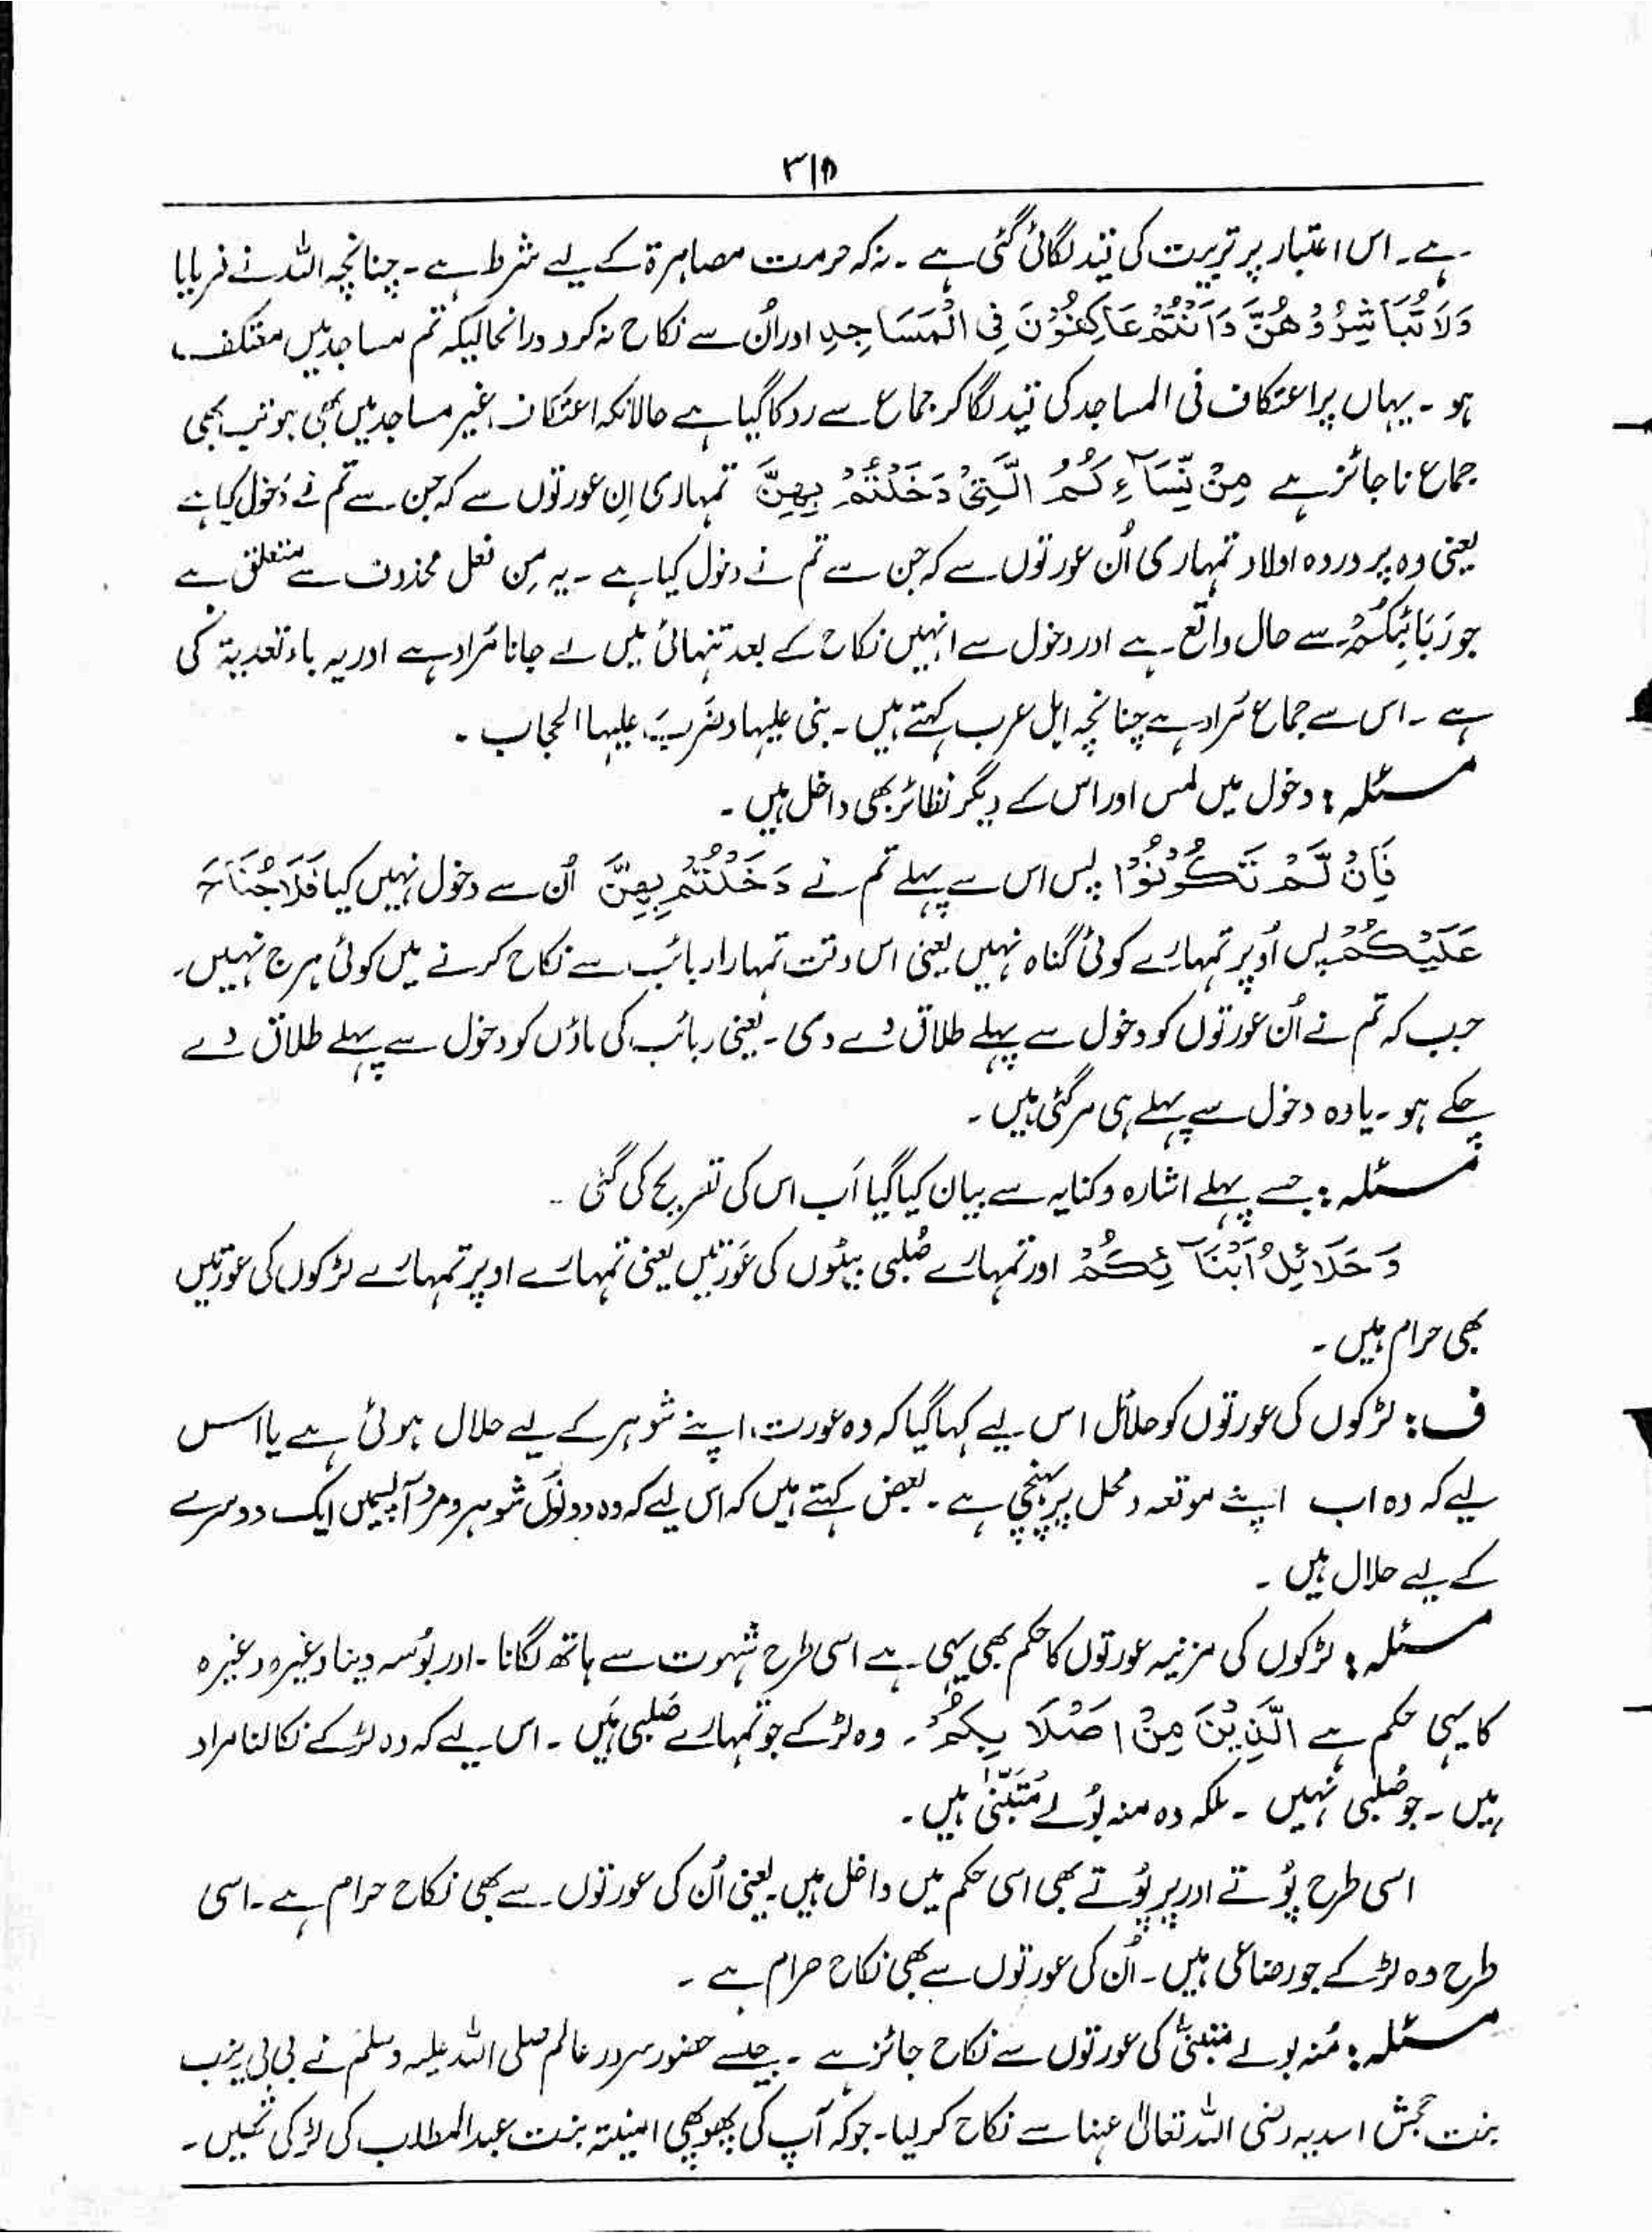 ۳۱۵
ہے۔ اس اعتبار پر تربیت کی قید لگائی گئی ہے۔ نہ کہ حرمت مصاہرۃ کے لیے شرط ہے۔ چنانچہ اللہ نے فرمایا
وَلَا تُبَاشِرُوْهُنَّ وَاَنْتُمْ عَاكِفُوْنَ فِی الْمَسَاجِدِ اور اُن سے نکاح نہ کرو درانحالیکہ تم مساجد میں معتکف
ہو۔ یہاں پر اعتکاف فی المساجد کی قید لگا کر جماع سے روکا گیا ہے حالانکہ اعتکاف غیر مساجد میں بھی ہو تب بھی
جماع ناجائز ہے مِنْ نِّسَآءِكُمُ الّٰتِیْ دَخَلْتُمْ بِهِنَّ تمہاری اِن عورتوں سے کہ جن سے تم نے دُخول کیا ہے
یعنی وہ پروردہ اولاد تمہاری اُن عورتوں سے کہ جن سے تم نے دخول کیا ہے۔ یہ مِن فعل محذوف سے متعلق ہے
جو رَبَائِبُكُمْ سے حال واقع ہے اور دخول سے انہیں نکاح کے بعد تنہائی میں لے جانا مُراد ہے اور یہ باء تعدیۃ کی
ہے۔ اس سے جماع مُراد ہے چنانچہ اہل عرب کہتے ہیں۔ بنی علیہا وضَرَبَ علیہا الحجاب۔
مسئلہ: دخول میں لمس اور اس کے دیگر نظائر بھی داخل ہیں۔
فَاِنْ لَّمْ تَكُوْنُوْا پس اس سے پہلے تم نے دَخَلْتُمْ بِهِنَّ اُن سے دخول نہیں کیا فَلَا جُنَاحَ
عَلَيْكُمْ پس اُوپر تمہارے کوئی گناہ نہیں یعنی اس وقت تمہارا ربائب سے نکاح کرنے میں کوئی ہرج نہیں۔
جب کہ تم نے اُن عورتوں کو دخول سے پہلے طلاق دے دی۔ یعنی ربائب کی ماؤں کو دخول سے پہلے طلاق دے
چکے ہو۔ یا وہ دخول سے پہلے ہی مر گئی ہیں۔
مسئلہ: جسے پہلے اشارہ و کنایہ سے بیان کیا گیا اَب اس کی تصریح کی گئی۔
وَحَلَائِلُ اَبْنَآئِكُمْ اور تمہارے صُلبی بیٹوں کی عَورتیں یعنی تمہارے اوپر تمہارے لڑکوں کی عورتیں
بھی حرام ہیں۔
ف: لڑکوں کی عورتوں کو حلائل اس لیے کہا گیا کہ وہ عورت، اپنے شوہر کے لیے حلال ہوئی ہے یا اس
لیے کہ وہ اب اپنے موقعہ و محل پر پہنچی ہے۔ بعض کہتے ہیں کہ اس لیے کہ وہ دونوں شوہر و مرد آپسمیں ایک دوسرے
کے لیے حلال ہیں۔
مسئلہ: لڑکوں کی مزنیہ عورتوں کا حکم بھی یہی ہے اسی طرح شہوت سے ہاتھ لگانا۔ اور بوُسہ دینا وغیرہ وغیرہ
کا یہی حکم ہے الَّذِيْنَ مِنْ اَصْلَابِكُمْ۔ وہ لڑکے جو تمہارے صُلبی ہیں۔ اس لیے کہ وہ لڑکے نکالنا مراد
ہیں۔ جو صُلبی نہیں۔ بلکہ وہ منہ بوُلے مُتَبَنّٰی ہیں۔
اسی طرح پوُتے اور پرپوُتے بھی اسی حکم میں داخل ہیں یعنی اُن کی عورتوں سے بھی نکاح حرام ہے۔ اسی
طرح وہ لڑکے جو رضاعی ہیں۔ اُن کی عورتوں سے بھی نکاح حرام ہے۔
مسئلہ: مُنہ بولے متبنیٰ کی عورتوں سے نکاح جائز ہے۔ جیسے حضور سرور عالم صلی اللہ علیہ وسلم نے بی بی زینب
بنت جحش اسدیہ رضی اللہ تعالیٰ عنہا سے نکاح کر لیا۔ جو کہ آپ کی پھوپھی امینۃ بنت عبدالمطلب کی لڑکی تھیں۔